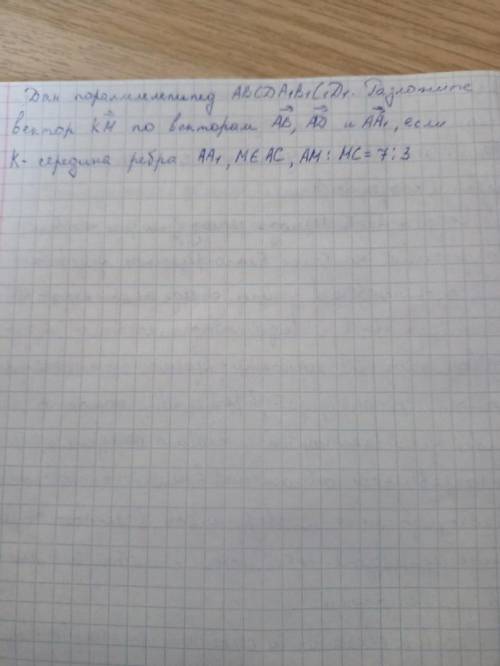 Дан параллелепипед ABCDA₁B₁C₁D₁. Разложите
вектор KM по векторам AB, AD и AA₁, если
K- середина ребра AA₁, M∈AC, AM:MC=7:3